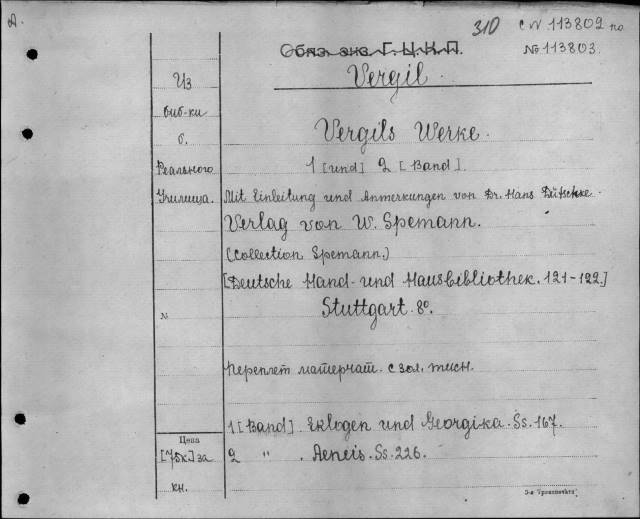 А.
310 с № 113802 по
№ 113803.
Обяз. экз. Г.Ц.К.П.
Vergil.
Из
биб-ки
б.
Реального
Училища.
Vergils Werke.
1 [und] 2 [Band].
Mit Einleitung und Anmerkungen von Dr. Hans Dütschke.
Verlag von W. Spemann.
(Collection Spemann.)
[Deutsche Hand- und Hausbibliothek. 121-122.]
№ Stuttgart. 8º.
Переплет матерчат. с зол. тисн.
1 [Band]. Eklogen und Georgika. Ss. 167.
Цена
[75к] за
кн.
2 " . Aeneis. Ss. 226.